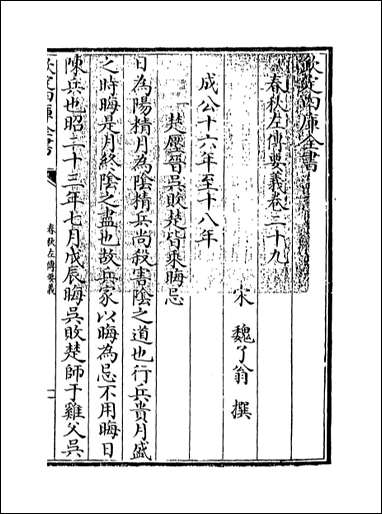 欽定四庫全書
春秋左傳要義卷二十九
宋 魏了翁 撰
成公十六年至十八年
楚壓晉吳敗楚皆乘晦忌
日為陽精月為陰精兵尚殺害陰之道也行兵貴月盛
之時晦是月終陰之盡也故兵家以晦為忌不用晦日
陳兵也昭二十三年七月戊辰晦吳敗楚師于雞父吳
欽定四庫全書
春秋左傳要義
一